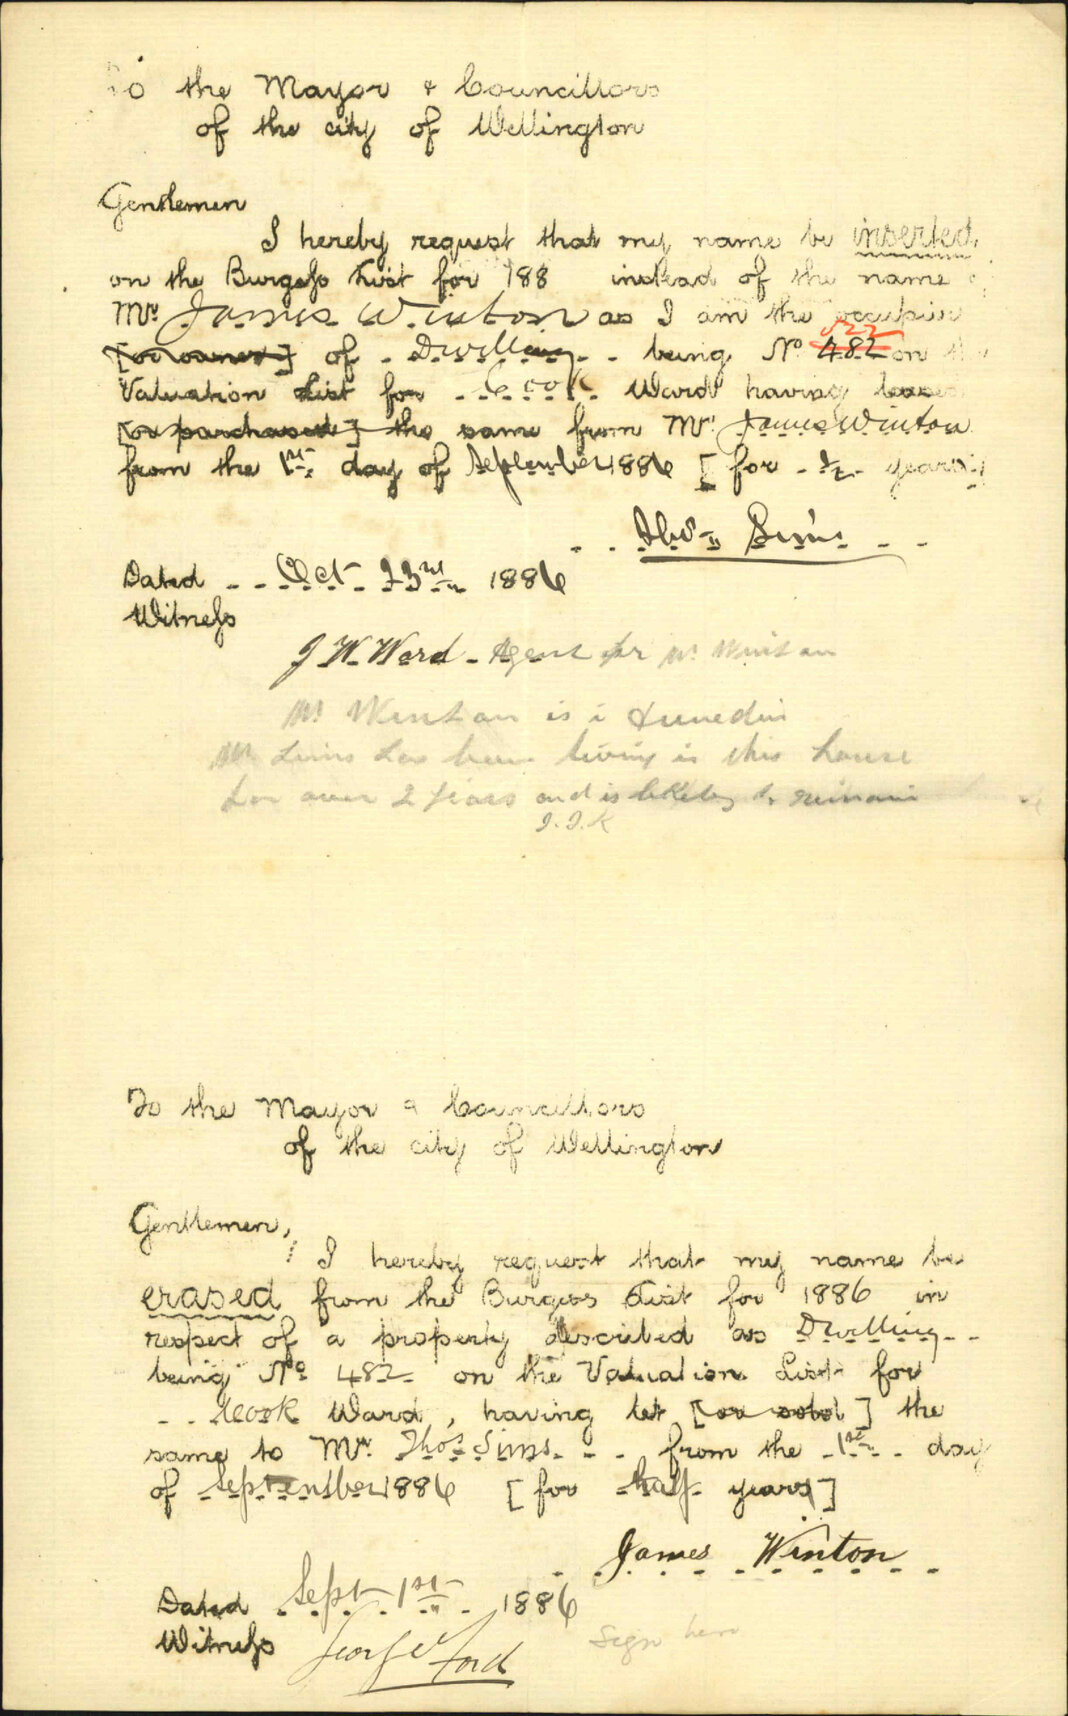 To the Mayor & Councillors
of the city of Wellington
Gentlemen
I hereby request that my name be inserted
on the Burgess List for 188 instead of the name
Mr James Winton as I am the occupier
[or owner] of Dwelling being No 482 522 on the
Valuation List for Cook Ward having leased
[or purchased] the same from Mr James Winton
from the 1st day of September 1886 [for 1/2 years]
Thos Sims
Dated Oct 23rd 1886
Witness
J W Ward Agent for Mr Winton
Mr Winton is i Dunedin
Mr Sims has been living in this house
for over 2 years and is likely to remain
J.J.K
To the Mayor & Councillors
of the city of Wellington
Gentlemen,
I hereby request that my name be
erased from the Burgess List for 1886 in
respect of a property described as Dwelling
being No 482 on the Valuation List for
Cook Ward, having let [or sold] the
same to Mr Thos Sims from the 1st day
of September 1886 [for half years]
James Winton
Dated Sept 1st 1886
Witness George Ford
Sign here